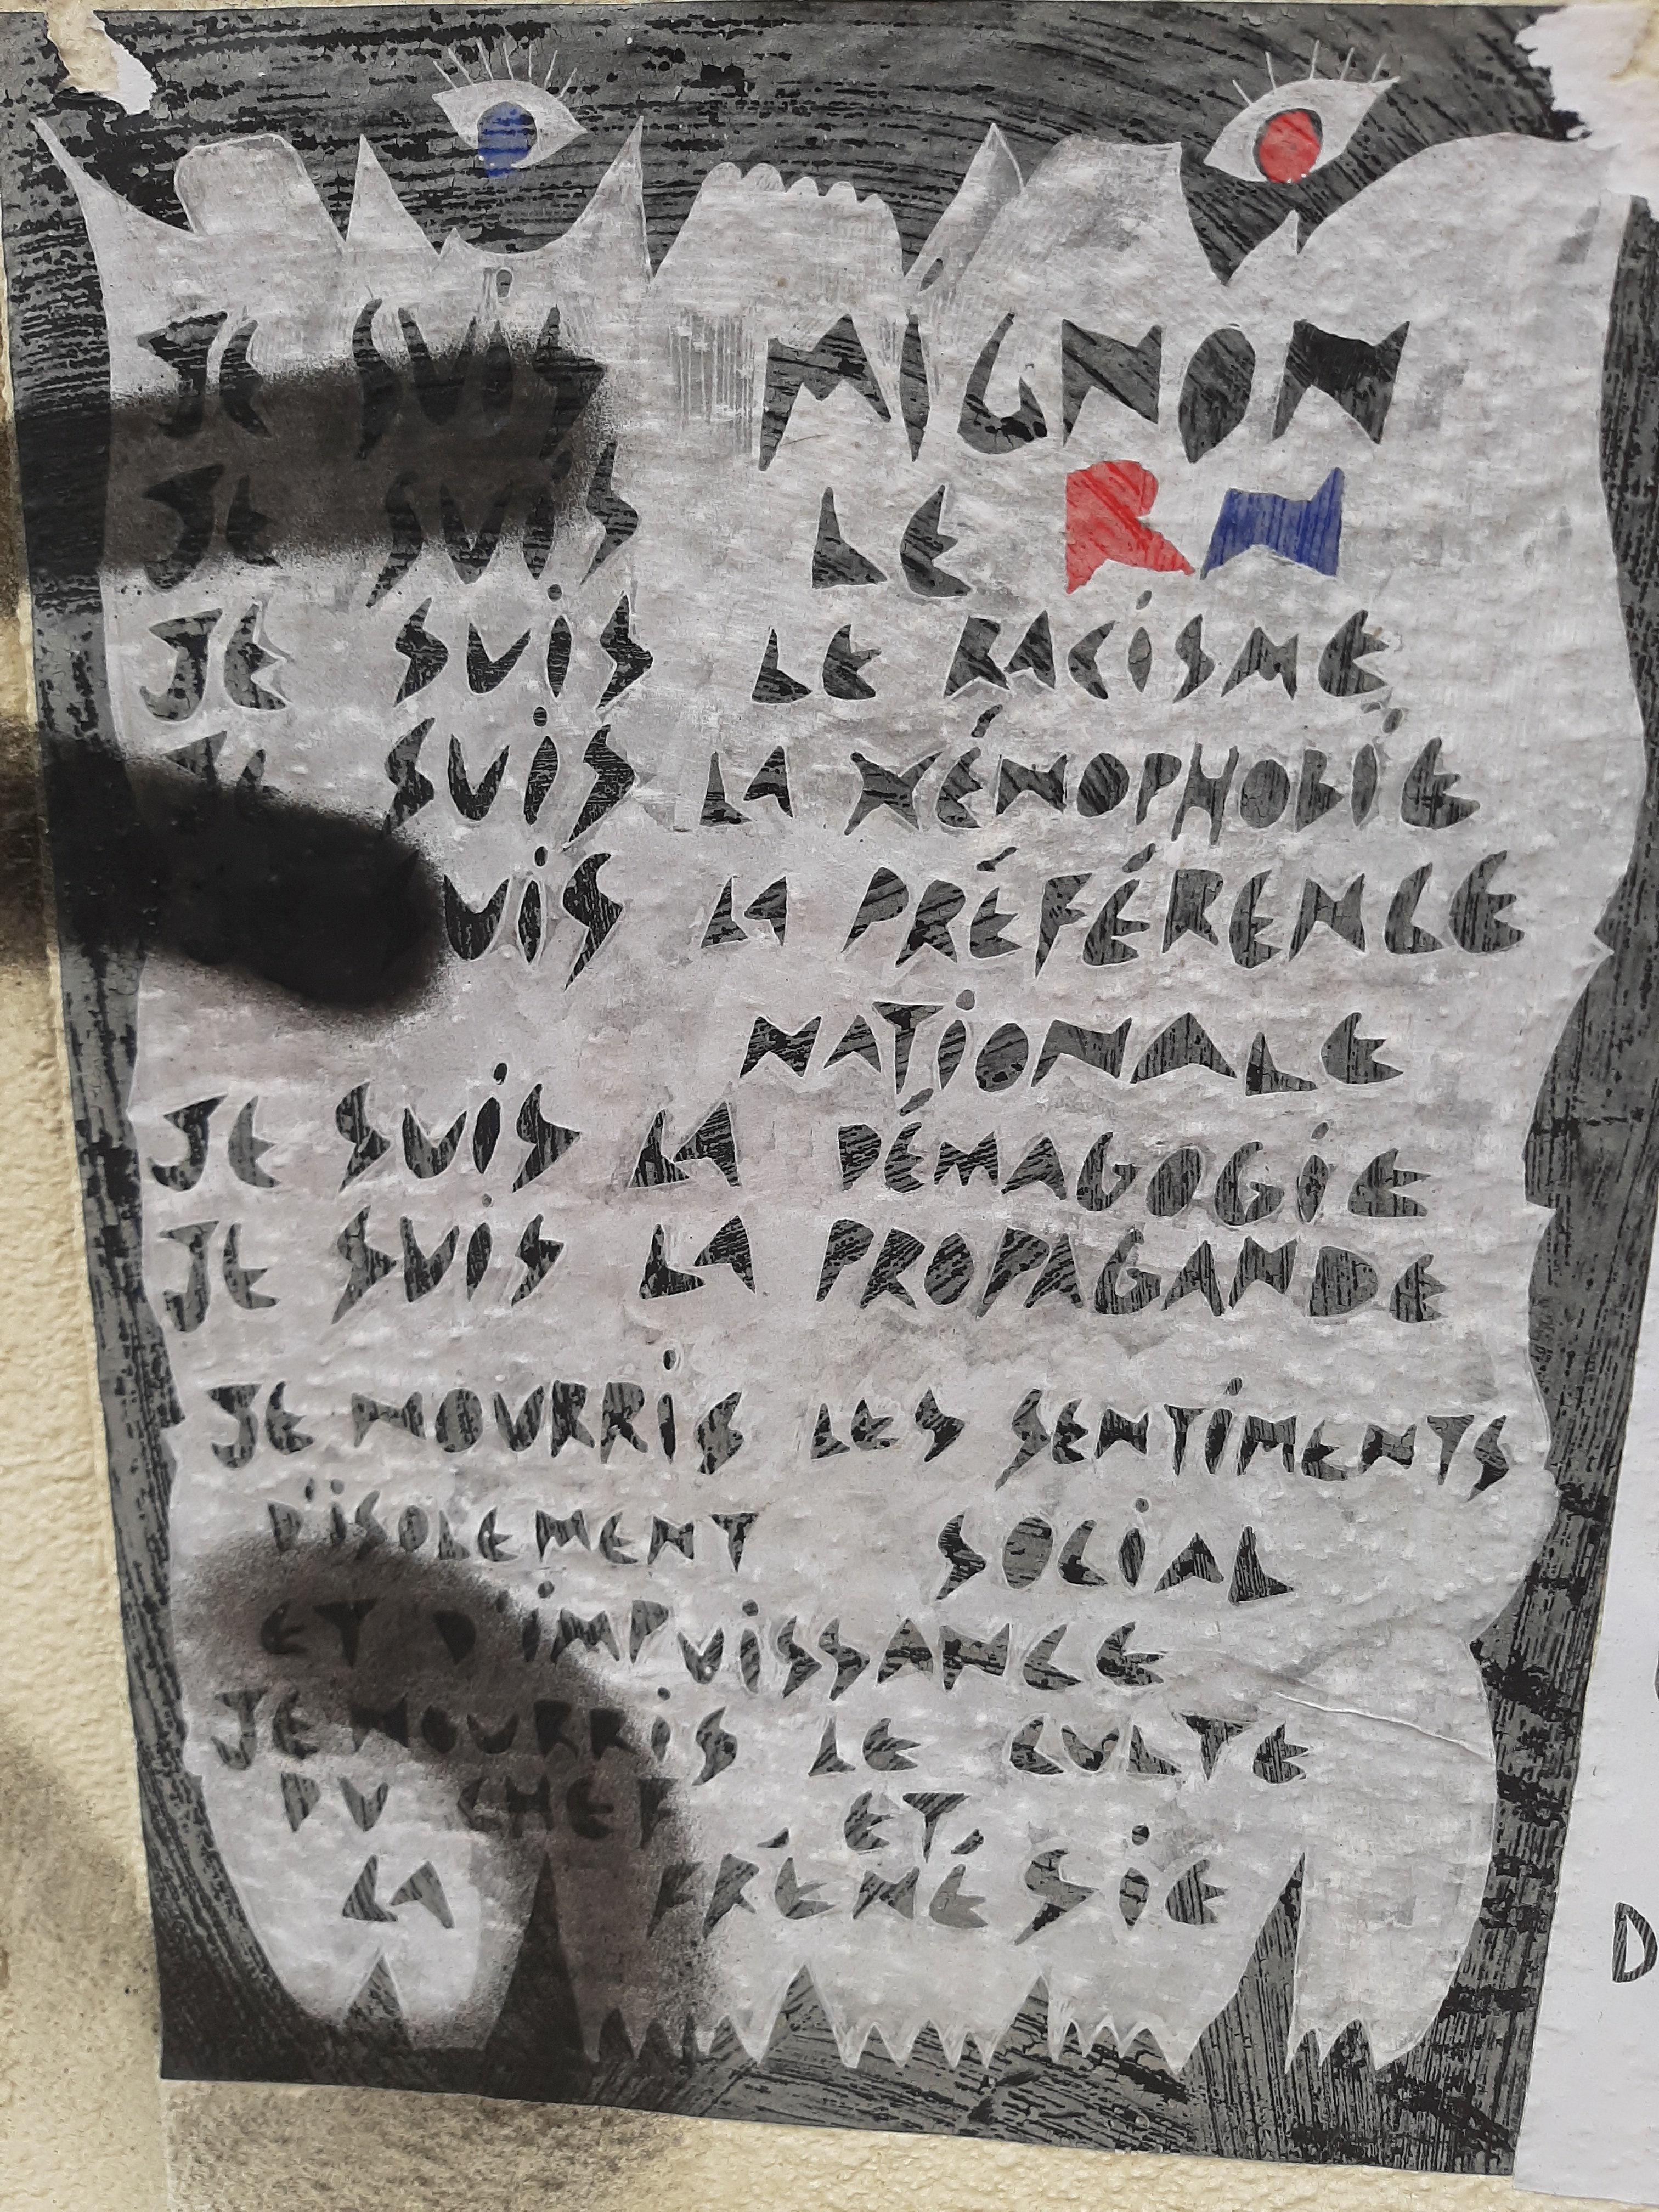 JE SUIS MIGNON
JE SUIS LE RN
JE SUIS LE RACISME
JE SUIS LA XÉNOPHOBIE
UIS LA PRÉFÉRENCE
NATIONALE
JE SUIS LA DÉMAGOGIE
JE SUIS LA PROPAGANDE
JE NOURRIS LES SENTIMENTS
D'ISOLEMENT SOCIAL
ET D'IMPUISSANCE
JE NOURRIS LE CULTE
DU CHEF ET
LA FRÉNÉSIE
D